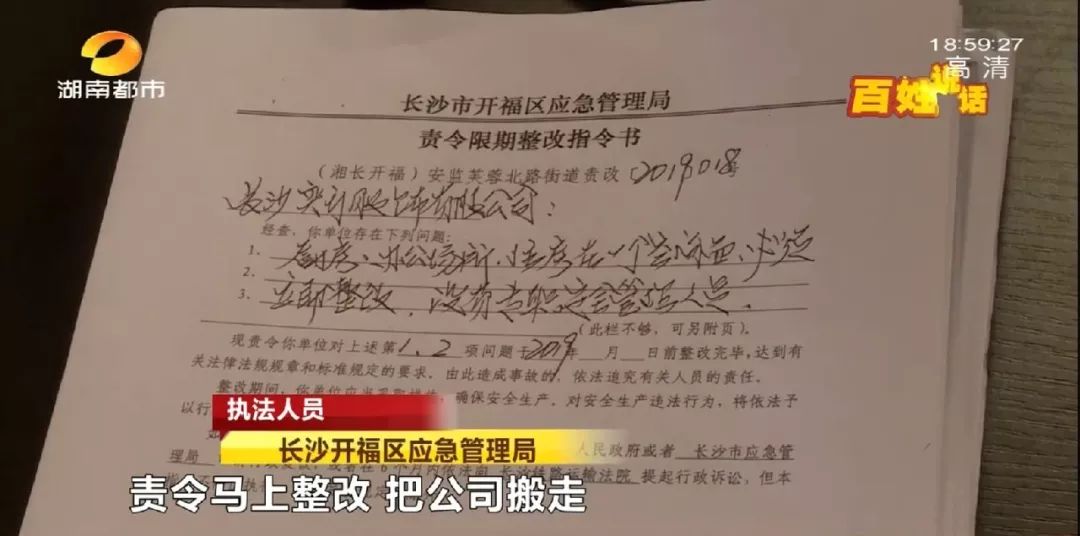 湖南都市
18:59:27
高清
百姓说话
长沙市开福区应急管理局
责令限期整改指令书
（湘长开福）安监芙蓉北路街道责改〔2019018号
长沙 有限公司：
经查，你单位存在下列问题：
1.
2.
立即整改，没有专职安全管理人员。
3.
（此栏不够，可另附页）。
现责令你单位对上述第1、2项问题于2019年___月___日前整改完毕，达到有
关法律法规规章和标准规定的要求。由此造成事故的，依法追究有关人员的责任。
整改期间，你单位应当采取措施，确保安全生产。对安全生产违法行为，将依法予
以行
人民政府或者 长沙市应急管
理局
6个月内依法向 长沙铁路运输法院 提起行政诉讼，但本
执法人员
长沙开福区应急管理局
责令马上整改 把公司搬走